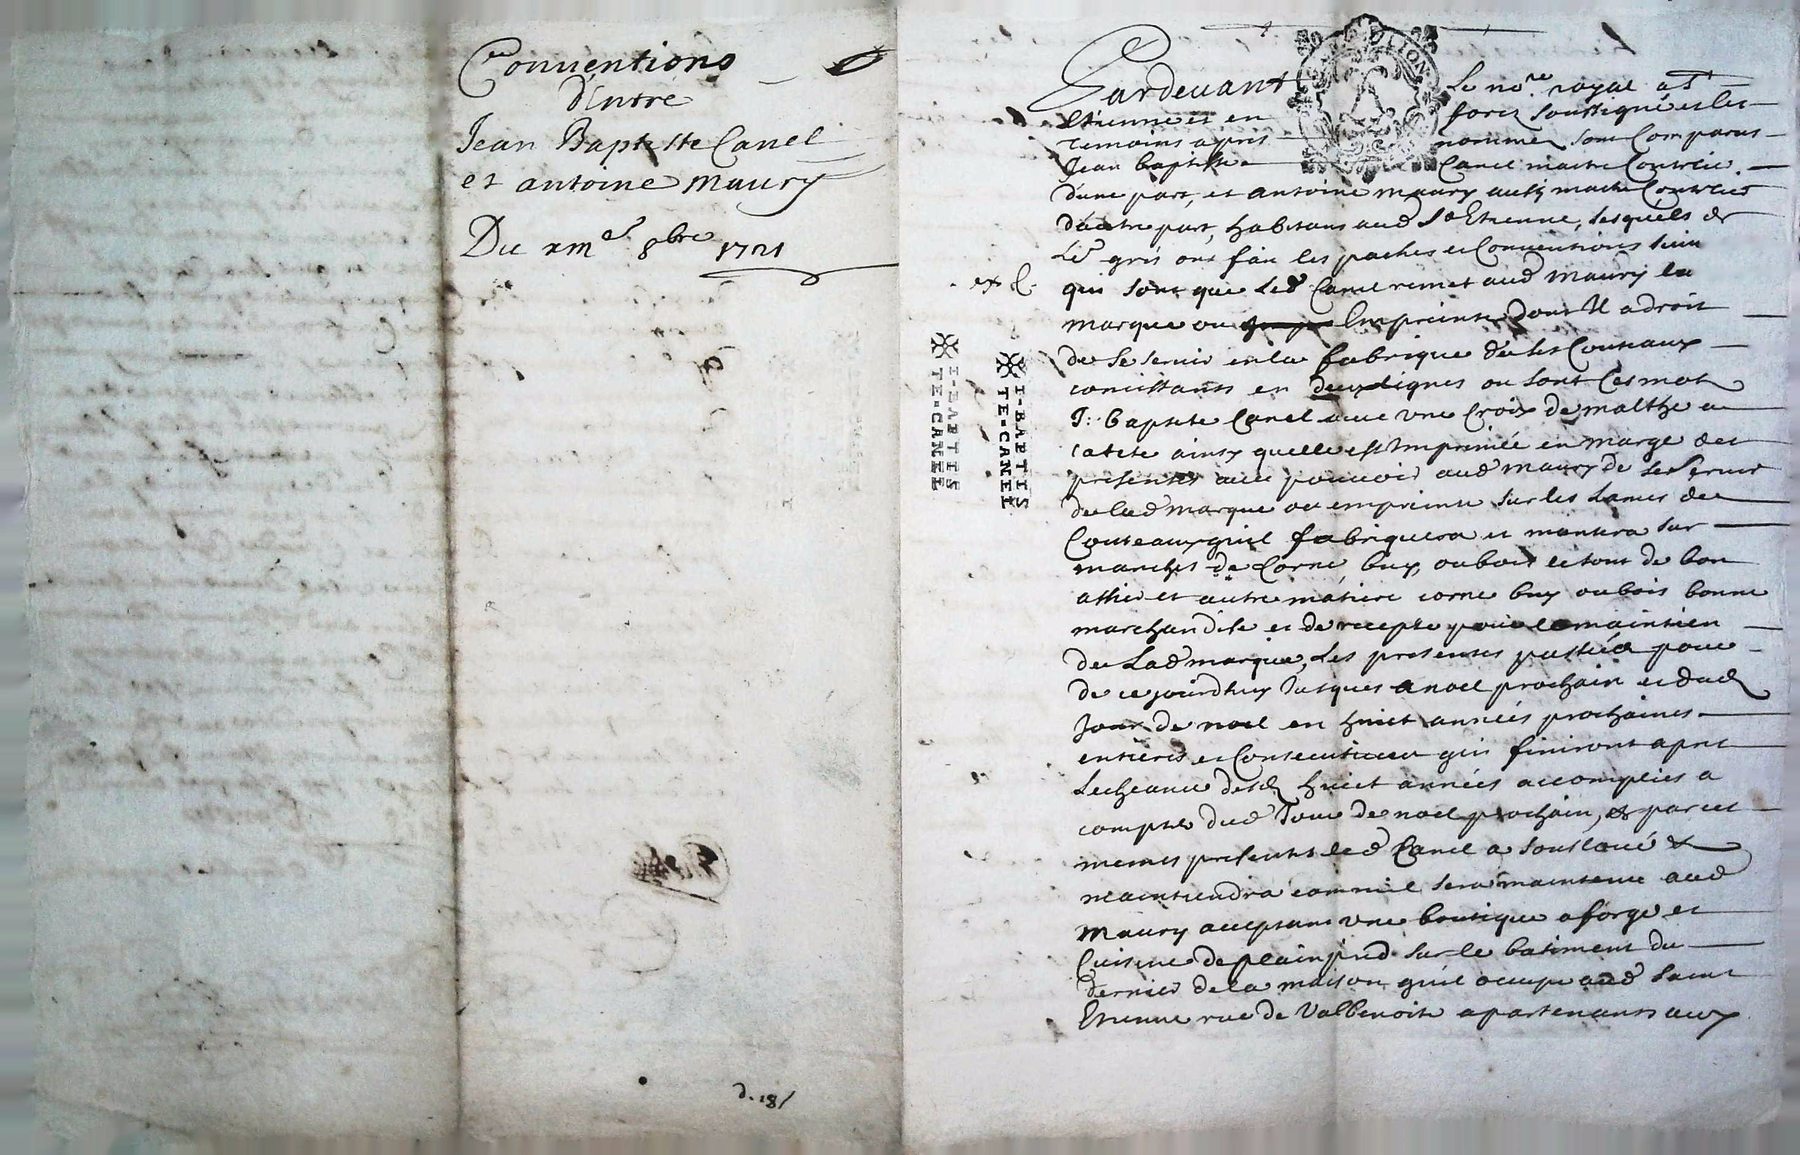 Conventions
d'Entre
Jean Baptiste Canel
et antoine Maury
Du xme 8bre 1721
d. 18/
Pardevant Le nore. royal a St
Etienne et en forez soussigné et les
temoins apres nommez sont Comparus
Jean baptiste Canel maitre Coutelier
d'une part, et antoine maury aussy maitre Coutelier
d'autre part, habitans aud St Etienne, lesquels de
gré ont fait les paches et Conventions
qui sont que Led Canel remet aud maury la
marque ou Empreinte dont Il a droit
de se servir en la fabrique de ses Couteaux
consistants en deux lignes ou sont Ces mots
J: baptiste Canel avec une Croix de malthe en
la tete ainsy quelle est Imprimée en marge des
presentes avec pouvoir aud maury de se servir
de lad marque ou empreinte sur les Lames des
Couteaux quil fabriquera et montera sur
manches de Corne, buy, ou bois et tout de bon
assier et autre matiere corne buy ou bois bonne
marchandise et de recepte pour le maintien
de Lad marque, Les presentes passées pour
de cejourdhuy Jusques a noel prochain et dud
Jour de noel en huict années prochaines
entieres et Consecutives qui finiront apres
Lecheance desd huict années accomplies a
compter dud Jour de noel prochain, et par ces
memes presentes led Canel a sousloué et
maintiendra comme il sera maintenu aud
Maury acceptant une boutique a forge et
Cuisine de plain pied sur le batiment du
dernier de la maison quil occupe aud saint
Etienne rue de Valbenoite apartenants aux
I-BAPTIS
TE-CANEL
I-BAPTIS
TE-CANEL